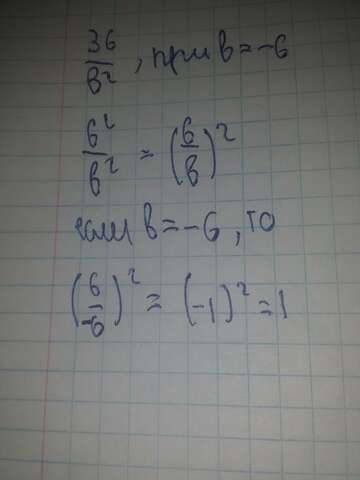 36/в², при в=-6
6²/в² = (6/в)²
если в=-6, то
(6/-6)² = (-1)² = 1